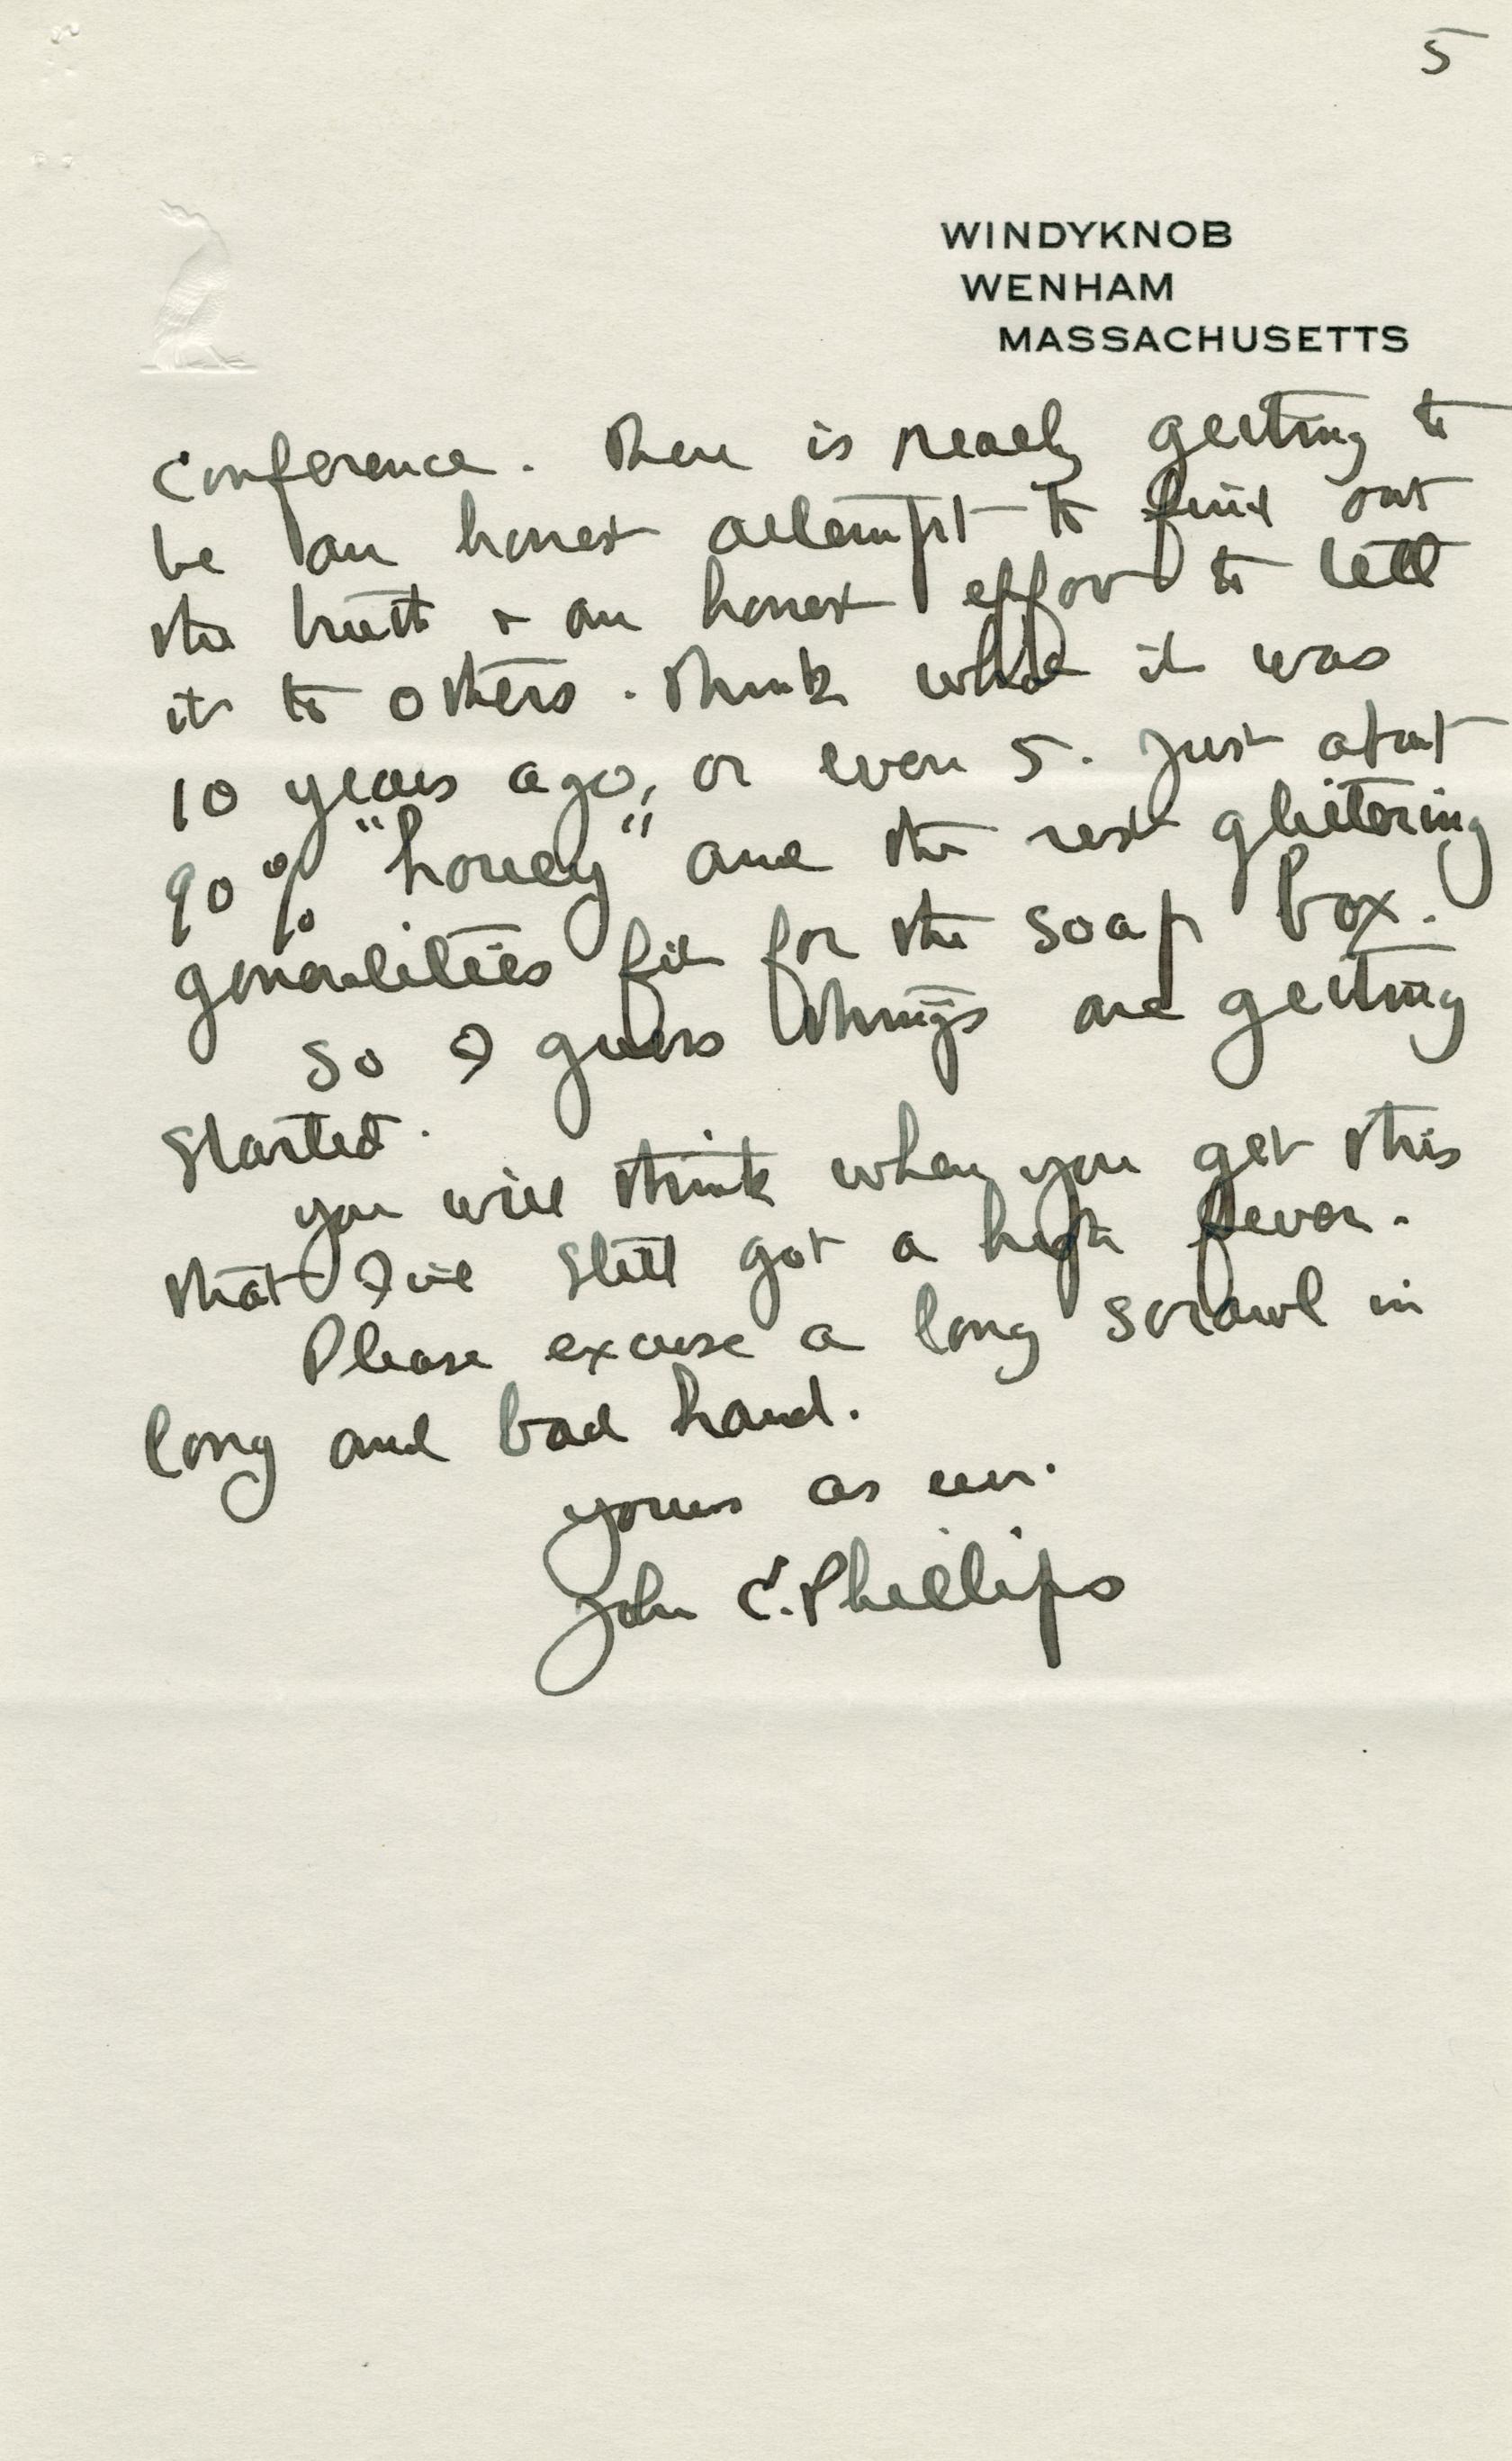 5
WINDYKNOB
WENHAM
MASSACHUSETTS
Conference. There is really getting to
be an honest attempt to find out
the truth & an honest effort to tell
it to others. Think what it was
10 years ago, or even 5. Just about
90% "honey" and the rest glittering
generalities fit for the soap box.
So I guess things are getting
started.
You will think when you get this
that I've still got a high fever.
Please excuse a long scrawl in
long and bad hand.
Yours as ever.
John C. Phillips